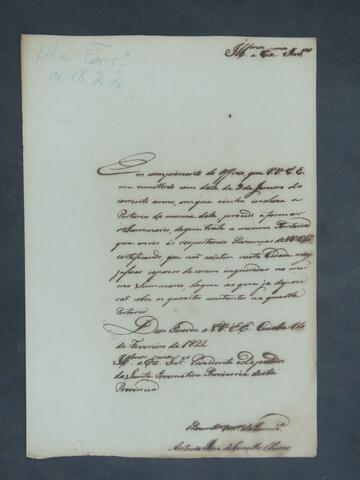 14 de Fevr.o
de 1822
Ill.mos e Ex.mos Snr.es
Em comprimento do Officio que V.as E.E.
me remetterão com data de 3 de Janeiro do
corrente anno, em que vinha incluza a
Portaria da mesma data, procedi a formar
o Summario, de que trata a mesma Portaria
que envio ás respeitaveis Prezenças de V.as E.E.
certificando que não existem nesta Cidade mais
pessoas capazes de serem inqueridas no mes
mo Summario, do que as que já depoze
rão sobre os quezitos constantes na quella
Portaria
Deos Guarde a V.as E.E. Cuiabá 14
de Fevereiro de 1822
Ill.mos e Ex.mos Snr.es Prezidente e Deputados
da Junta Governativa Provizoria desta
Provincia
Antonio Joze de Carvalho Chaves